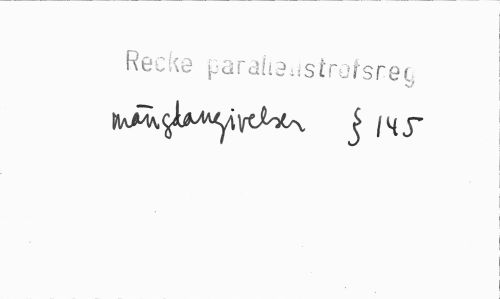 Recke parallellstrofsreg
mängdangivelser § 145